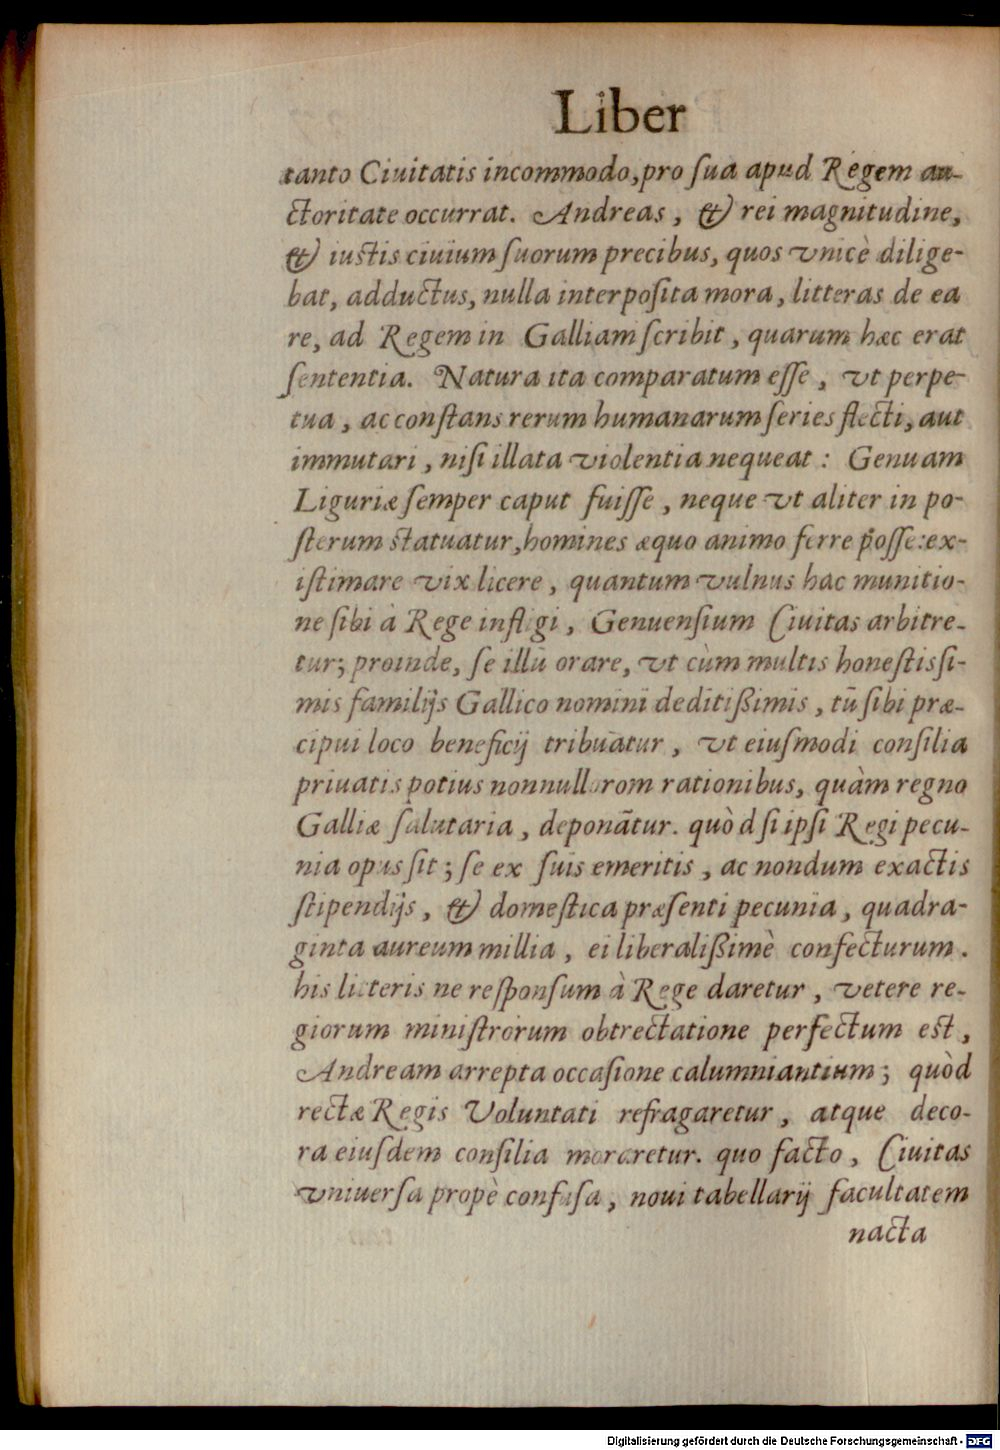 Liber
tanto Ciuitatis incommodo, pro ſua apud Regem au-
ctoritate occurrat. Andreas, & rei magnitudine,
& iustis ciuium ſuorum precibus, quos vnicè dilige-
bat, adductus, nulla interpoſita mora, litteras de ea
re, ad Regem in Galliam ſcribit, quarum hæc erat
ſententia. Natura ita comparatum eſſe, vt perpe-
tua, ac conſtans rerum humanarum ſeries flecti, aut
immutari, niſi illata violentia nequeat: Genuam
Liguriæ ſemper caput fuiſſe, neque vt aliter in po-
ſterum statuatur, homines æquo animo ferre poſſe: ex-
iſtimare vix licere, quantum vulnus hac munitio-
ne ſibi à Rege infligi, Genuenſium Ciuitas arbitre-
tur; proinde, ſe illū orare, vt cùm multis honeſtisſi-
mis familijs Gallico nomini deditißimis, tū ſibi præ-
cipui loco beneficij tribuātur, vt eiuſmodi conſilia
priuatis potius nonnullorom rationibus, quàm regno
Galliæ ſalutaria, deponātur. quòd ſi ipſi Regi pecu-
nia opus ſit; ſe ex ſuis emeritis, ac nondum exactis
ſtipendijs, & domeſtica præſenti pecunia, quadra-
ginta aureum millia, ei liberalißimè confecturum.
his litteris ne reſponſum à Rege daretur, vetere re-
giorum miniſtrorum obtrectatione perfectum est,
Andream arrepta occaſione calumniantium; quòd
rectæ Regis Voluntati refragaretur, atque deco-
ra eiuſdem conſilia moraretur. quo facto, Ciuitas
vniuerſa propè confuſa, noui tabellarij facultatem
nacta
Digitalisierung gefördert durch die Deutsche Forschungsgemeinschaft - DFG